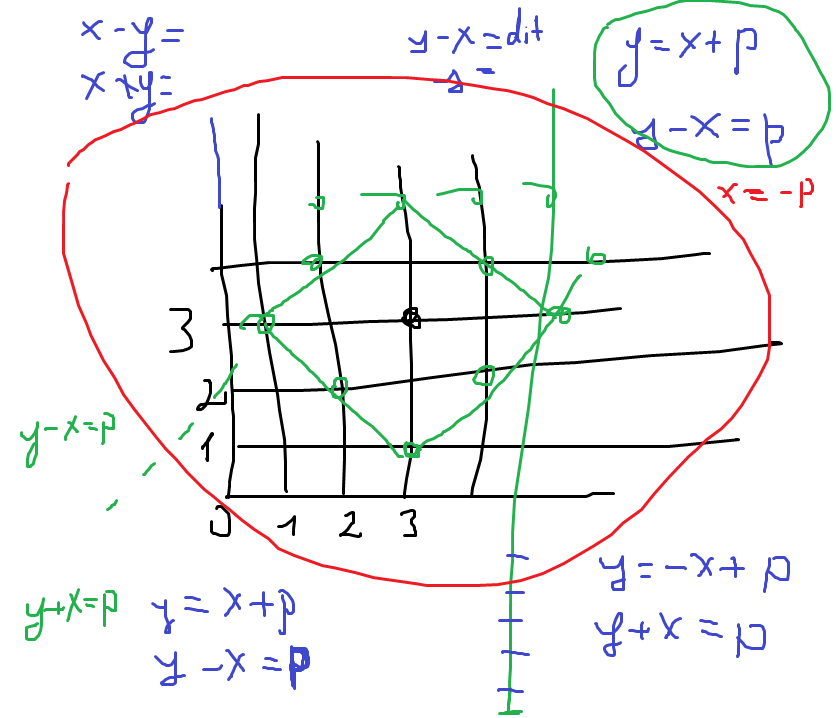 x - y =
x + y =
y - x = dit
y = x + p
y - x = p
x = - p
3
2
1
0 1 2 3
y - x = p
y + x = p
y = x + p
y - x = p
y = - x + p
y + x = p